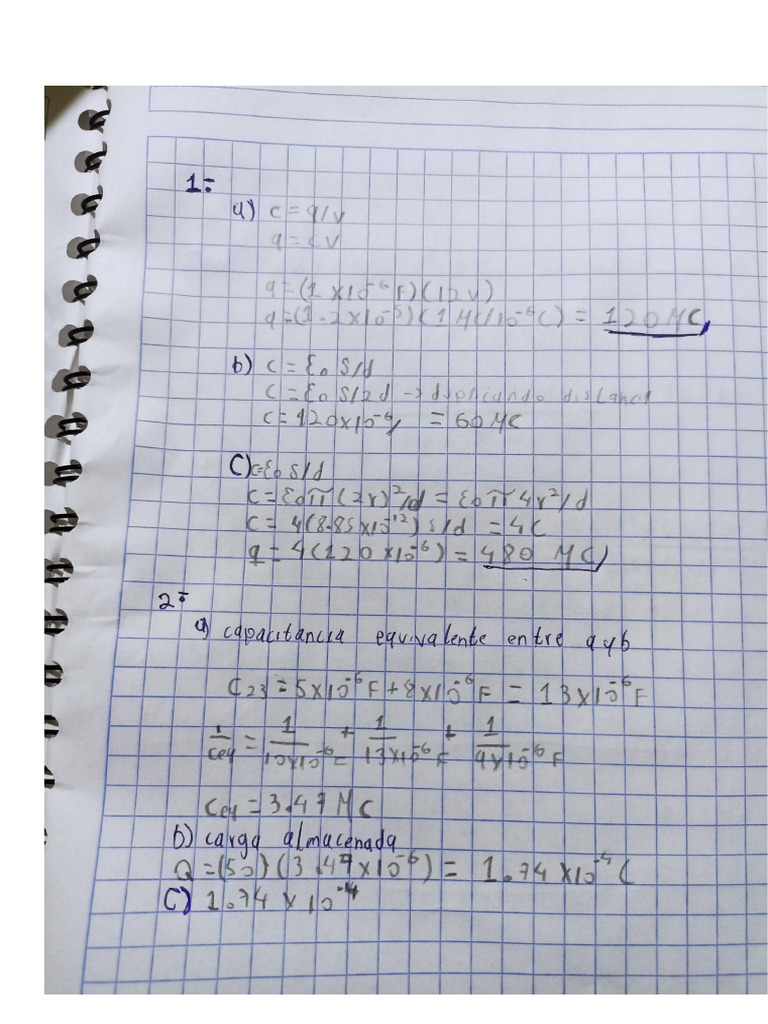 1:
a) c = q/v
q = cv
q = (1 x10⁻⁶ F)(12V)
q = (1.2x10⁻⁵)(1MC/10⁻⁶C) = 120 MC
b) c = ε₀ s/d
c = ε₀ s/2d → duplicando distanci
c = 120x10⁻⁶/ = 60 MC
C) c=ε₀ s/d
c = ε₀π(2r)²/d = ε₀π4r²/d
c = 4(8.85x10⁻¹²) s/d = 4C
q = 4(120 x10⁻⁶) = 480 MC
2:
a) capacitancia equivalente entre a y b
C₂₃ = 5x10⁻⁶F + 8x10⁻⁶F = 13x10⁻⁶F
1/Ceq = 1/10x10⁻⁶ + 1/13x10⁻⁶F + 1/9x10⁻⁶F
Ceq = 3.47 MC
b) carga almacenada
Q = (50)(3.47x10⁻⁶) = 1.74 x10⁻⁴ C
C) 1.74 x 10⁻⁴